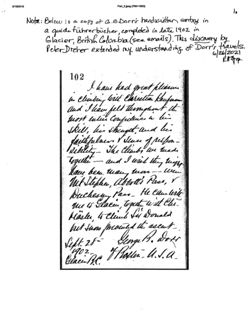 Note: Below is a copy of a Dorr's handwritten entry in
a guide führerbücher completed in late 1902 in
Glacier, British Columbia (see emails). This discovery by
Peter Dreher extended my understanding of Dorr's travels.
102
I have had great pleasure
in climbing with Christian Kaufmann
and I have felt throughout the
most entire confidence in his
skill, his strength, and his
faithfulness & sense of respon-
sibility. The climbs we made
together — and I wish they might
have been many more — were
Mt Stephen, Abbott's Pass, &
Duchesnay Pass. He came with
me to Glacier, together with Chr.
Häsler, to climb Sir Donald
but snow prevented the ascent.
Sept. 28 –
1902.
George B. Dorr
Glacier, B.C.
of Boston, U.S.A.